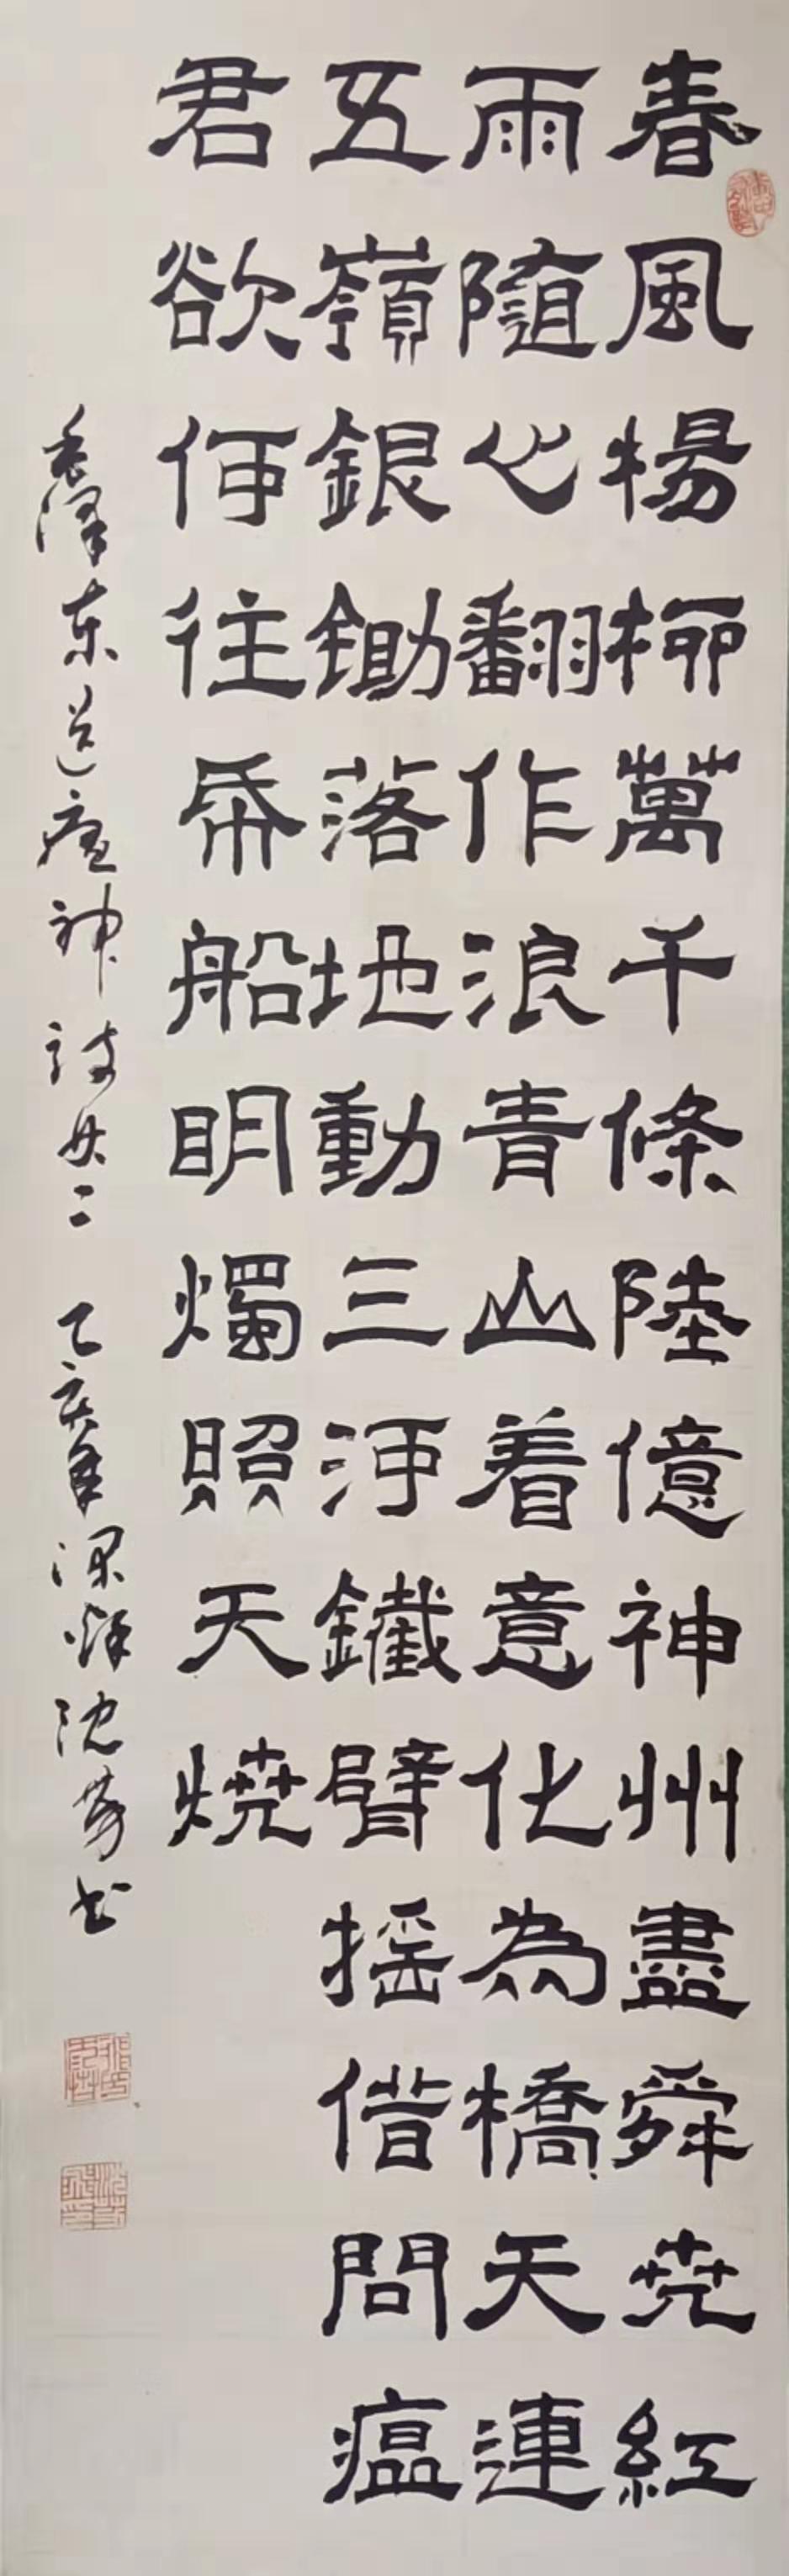 春風楊柳萬千條陸億神州盡舜尭紅
雨隨心翻作浪青山着意化為橋天連
五嶺銀鋤落地動三河鐵臂摇借問瘟
君欲何往帋船明燭照天焼
毛澤东送瘟神詩其二 乙亥年深秋沈书